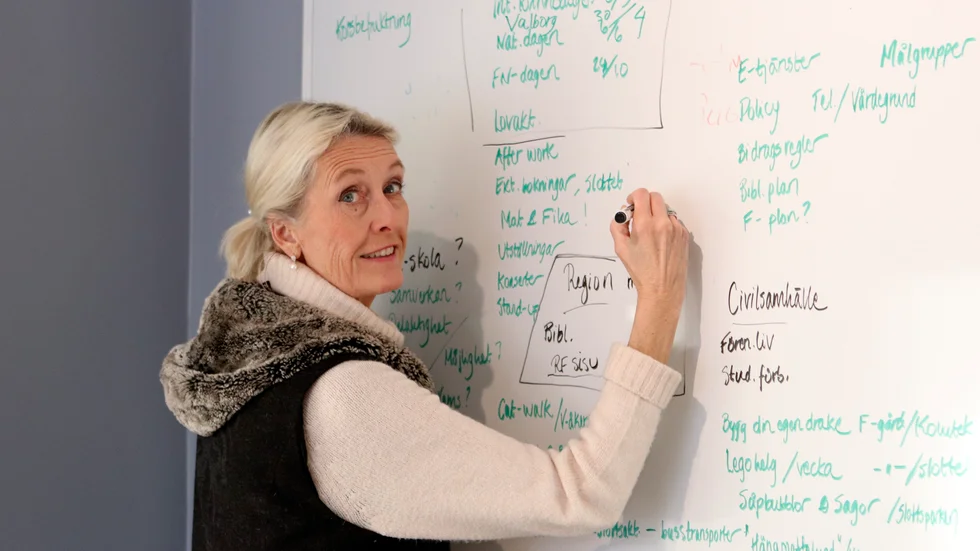 Konsbefruktning
Int. kvinnodagen 8/3
Valborg 30/4
Nat.dagen 6/6
FN-dagen 24/10
Lovakt.
After work
Ext. bokningar, slottet
Mat & Fika!
Utställningar
Konserter
Stand-up
-skola?
Samverkan?
/Möjlighet?
Region
Bibl.
RF SISU
Cat-walk/
E-tjänster
Målgrupper
Policy Tel./Värdegrund
Bidragsregler
Bibl. plan
F-plan?
Civilsamhälle
Fören.liv
Stud. förb.
Bygg din egen drake F-gård/Komtek
Legohelg/vecka -"-/slottet
Såpbubblor & Sagor /Slottsparken
- busstransporter